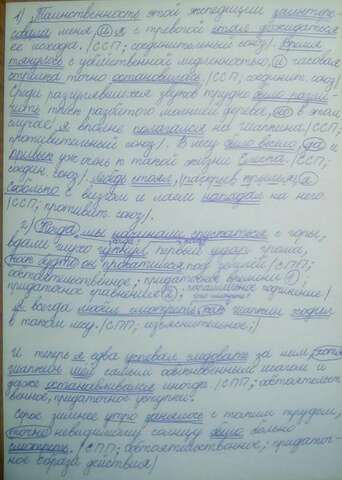 1) Таинственность этой экспедиции заинтере-
совала меня, и я с тревогой стал дожидаться
ее похода. /ССП; соединительный союз/. Время
тянулось с убийственной медленностью, и часовая
стрелка точно остановилась. /ССП; соединит. союз/
Среди разгулявшихся звуков трудно было разли-
чить писк разбитого молнией дерева, но в этом
случае я вполне полагался на шаплина. /ССП;
противительный союз/. В лесу было весело, да и
привык уж очень к такой жизни Смета. /ССП;
соедин. союз/. Медведь стоял, /разгрыв /, а
собаки с визгом и лаем наседали на него.
/ССП; противит. союз/.
2) Когда мы начинали спускаться с горы,
вдали глухо первый удар грома,
как будто он провалился под землей. /СПП;
обстоятельственное; придаточное времени и
придаточное сравнения; подчинение/
Я всегда любил смотреть, как шаплин ходил
в таком лесу. /СПП; изъяснительное;/
И теперь я едва успевал следовать за ним, хотя
шаплин шел самым обыкновенным шагом и
даже останавливался иногда. /СПП; обстоятельст-
венное, придаточное уступки.
Серое зимнее утро занялось с таким трудом,
точно невидимому солнцу было больно
смотреть. /СПП; обстоятельственное; придаточ-
ное образа действия/